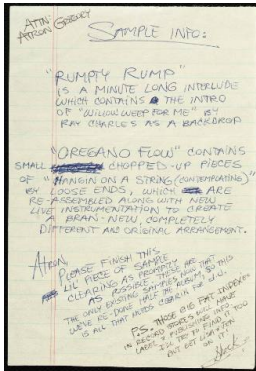 ATTN
ATRON GREGORY
SAMPLE INFO:
"RUMPTY RUMP"
IS A MINUTE LONG INTERLUDE
WHICH CONTAINS THE INTRO
OF "WILLOW WEEP FOR ME" BY
RAY CHARLES AS A BACKDROP
"OREGANO FLOW" CONTAINS
SMALL CHOPPED-UP PIECES
OF "HANGIN ON A STRING (CONTEMPLATING)"
BY LOOSE ENDS, WHICH ARE
RE-ASSEMBLED ALONG WITH NEW
LIVE INSTRUMENTATION TO CREATE
A BRAN-NEW, COMPLETELY
DIFFERENT AND ORIGINAL ARRANGEMENT.
ATRON
PLEASE FINISH THIS
LIL' PIECE OF SAMPLE
CLEARING AS PROMPTLY
AS POSSIBLE. THESE ARE
THE ONLY EXISTING SAMPLES NOW THAT
WE'RE RE-DONE HALF THE ALBUM, SO THIS
IS ALL THAT NEEDS CLEARIN FOR
P.S. THOSE BIG FAT INDEXES
IN RECORD STORES WILL HAVE
LABEL & PUBLISHING INFO.
I'LL TRY TO FIND IT TOO
BUT GET
ON IT!